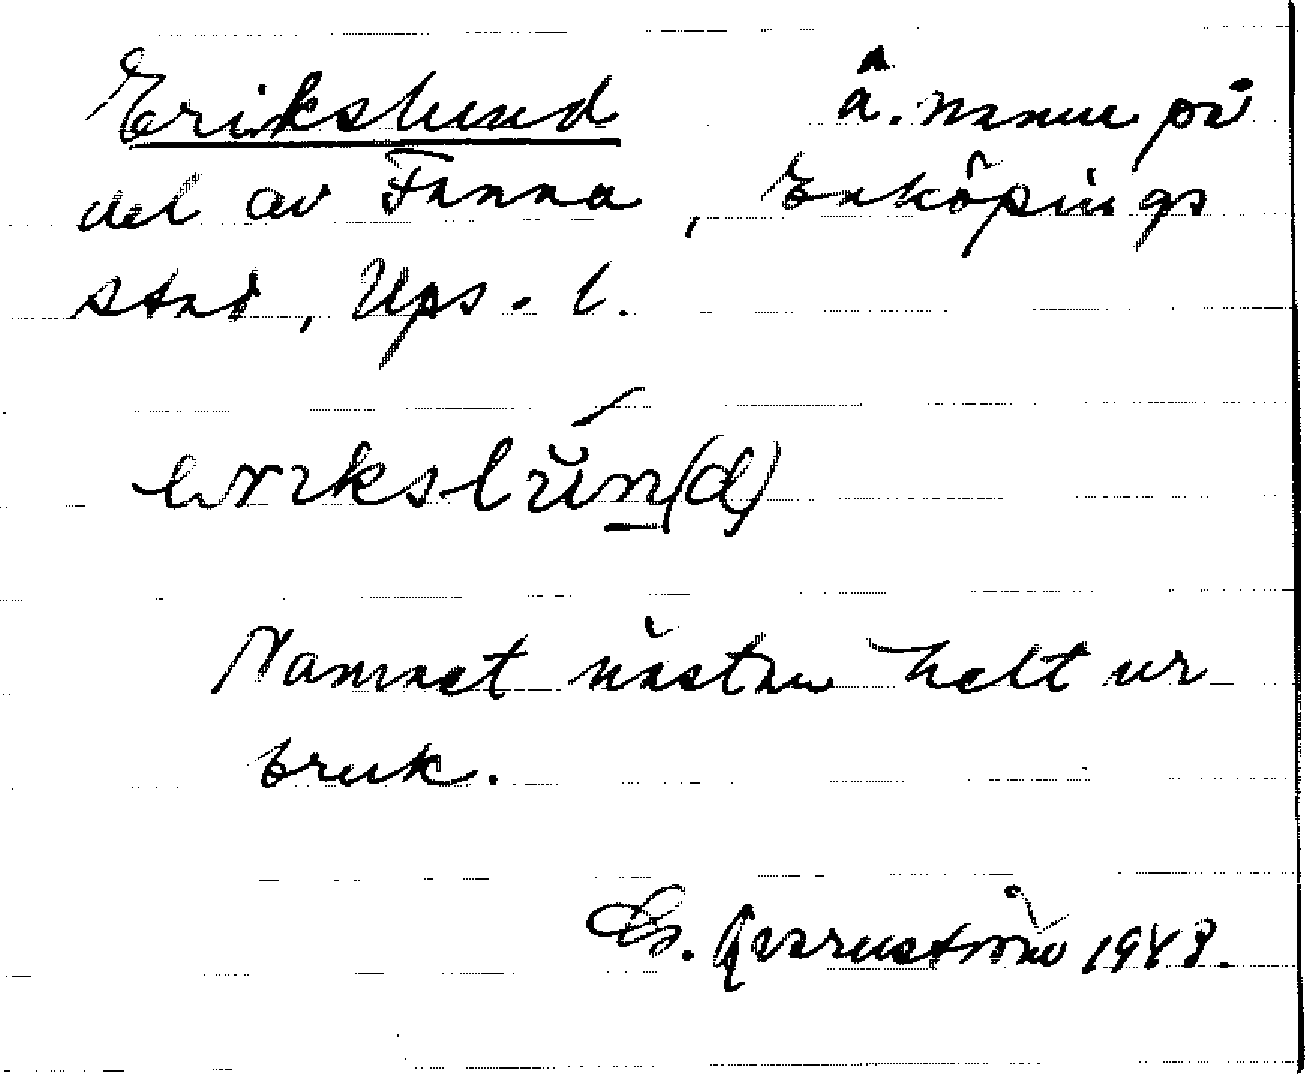 Erikslund å. namn på
del av Fanna, Enköpings
stad, Ups. l.
erikslun(d)
Namnet nästan helt ur
bruk.
Es. Qvarnström 1948.